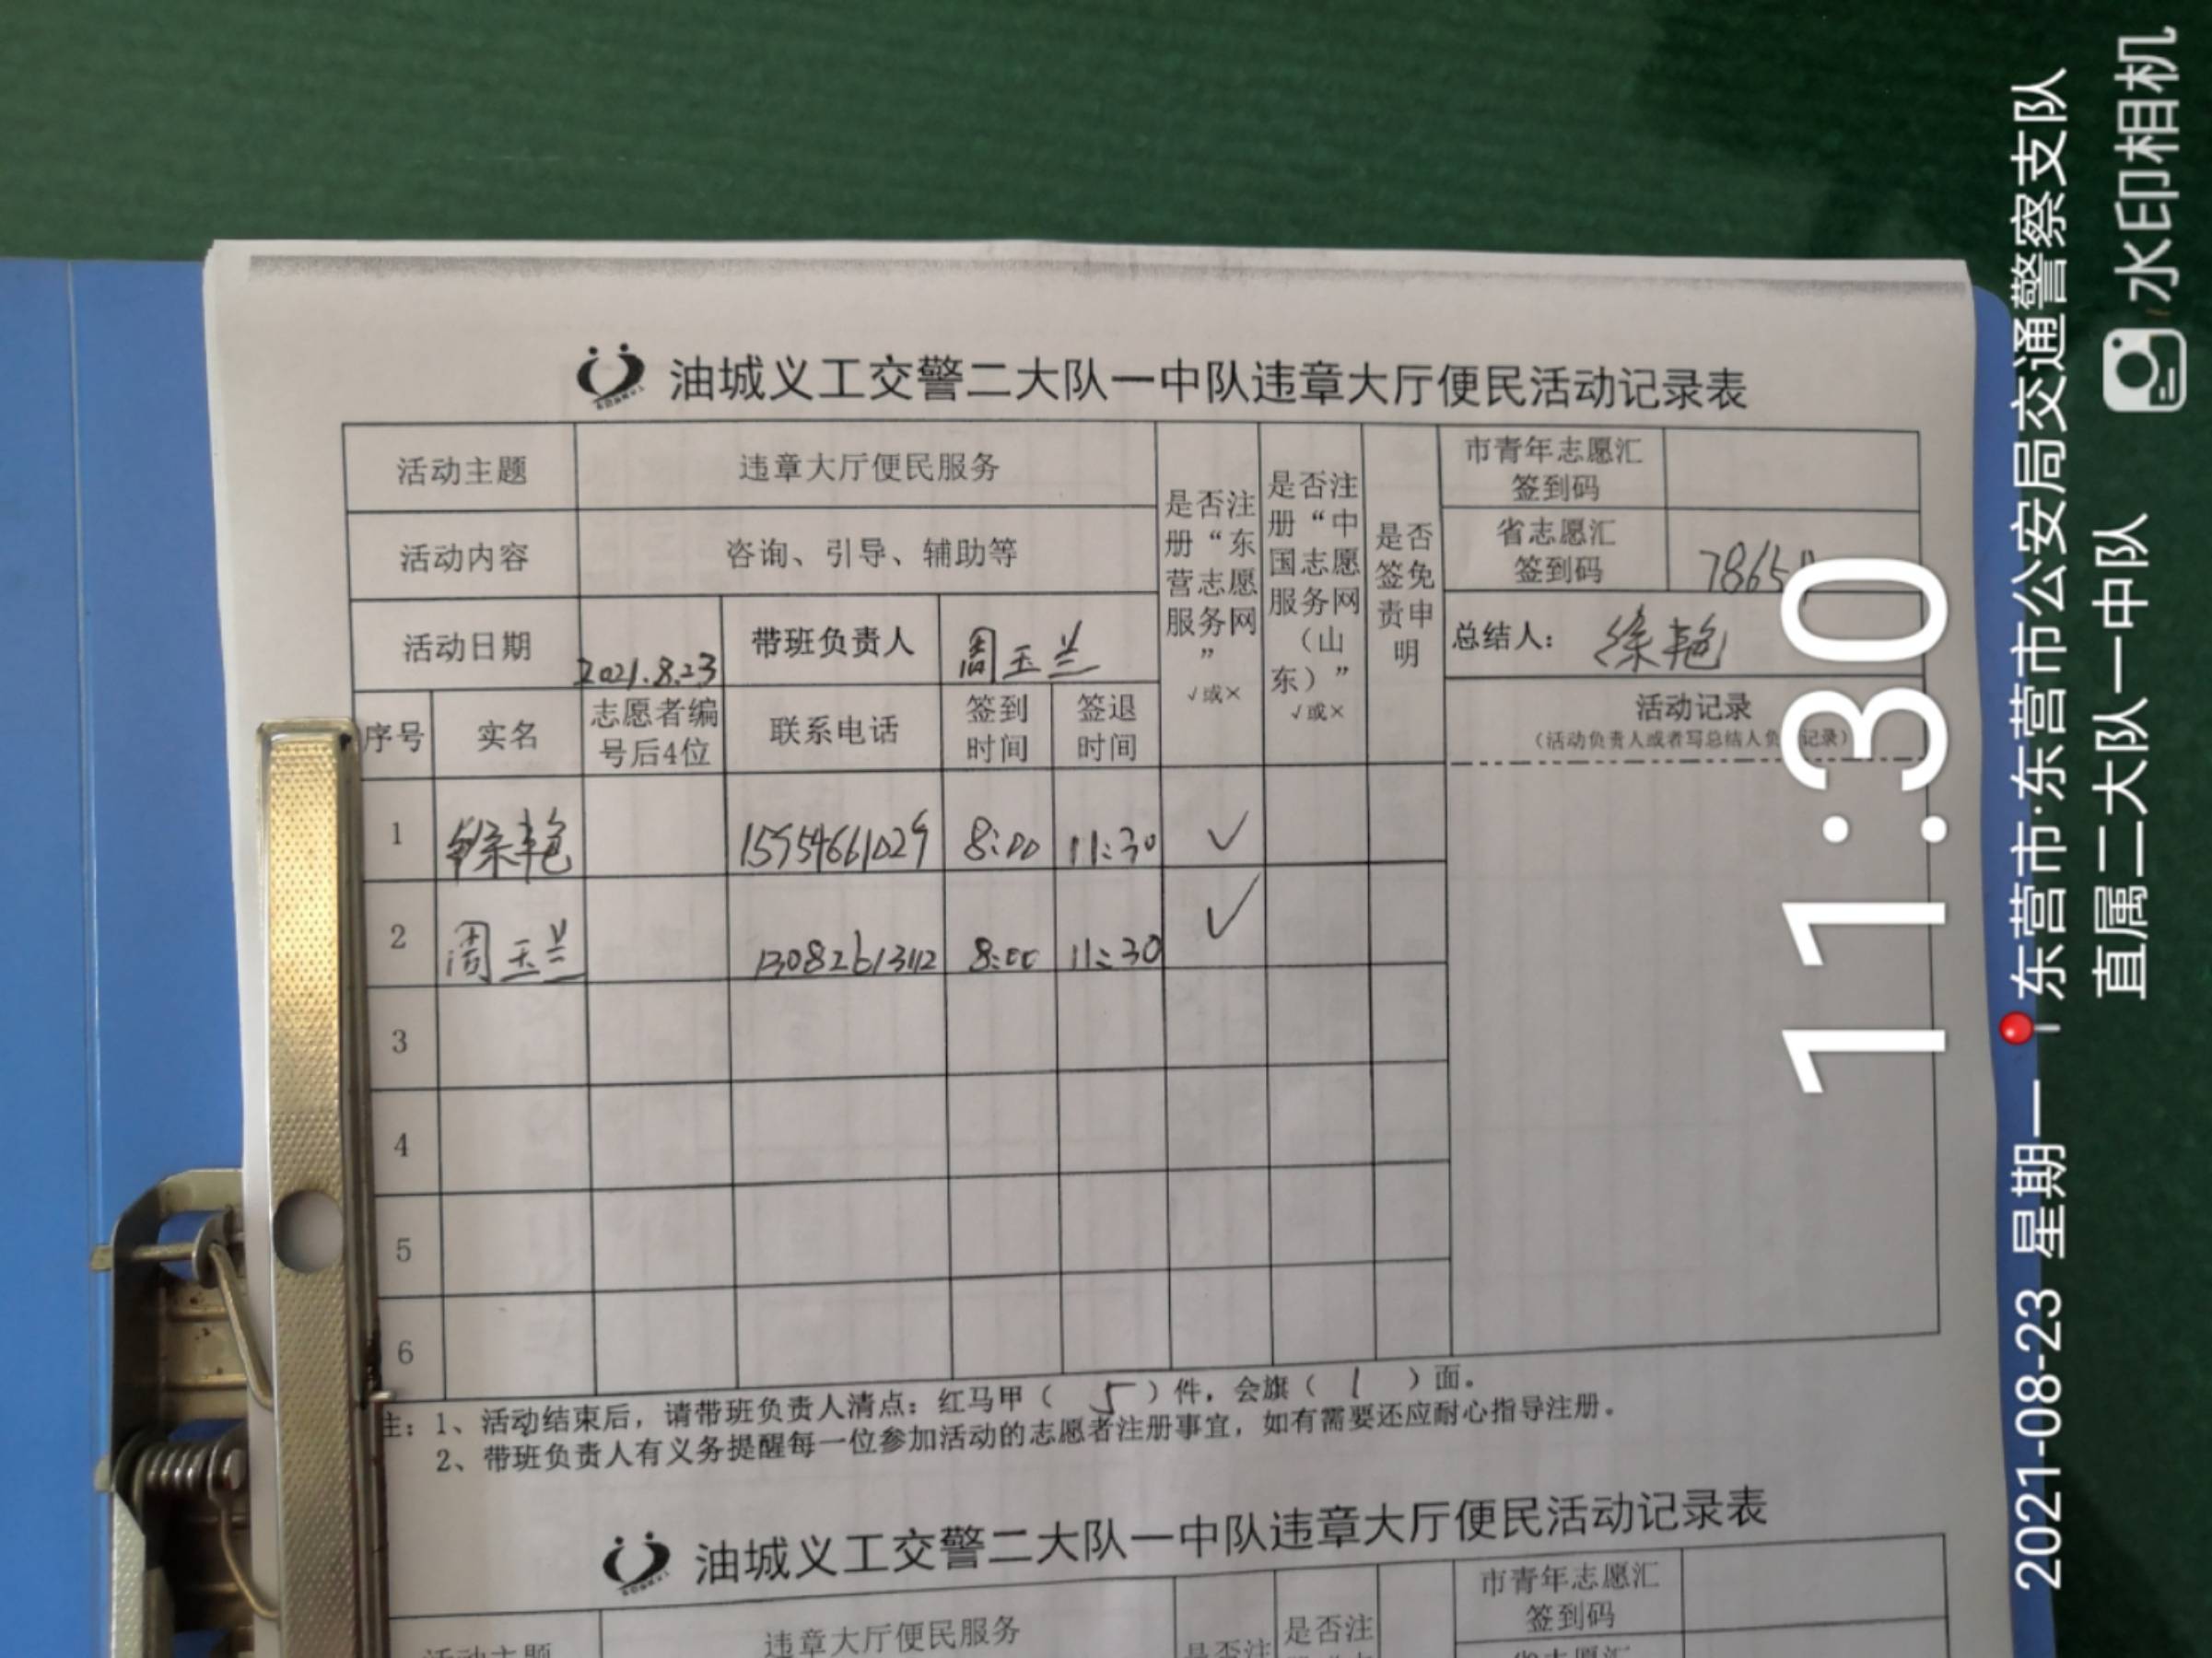 油城义工交警二大队一中队违章大厅便民活动记录表
活动主题 违章大厅便民服务
活动内容 咨询、引导、辅助等
活动日期 2021.8.23 带班负责人 周玉兰
是否注册“东营志愿服务网” √或×
是否注册“中国志愿服务网（山东）” √或×
是否签免责申明
市青年志愿汇签到码
省志愿汇签到码 7865
总结人： 徐艳
活动记录
（活动负责人或者写总结人负 记录）
序号 实名 志愿者编号后4位 联系电话 签到时间 签退时间
1 徐艳 15954661029 8:00 11:30 ✓
2 周玉兰 13082613112 8:00 11:30 ✓
3
4
5
6
注：1、活动结束后，请带班负责人清点：红马甲（ 5 ）件，会旗（ 1 ）面。
2、带班负责人有义务提醒每一位参加活动的志愿者注册事宜，如有需要还应耐心指导注册。
油城义工交警二大队一中队违章大厅便民活动记录表
活动主题 违章大厅便民服务
是否注
是否注
市青年志愿汇签到码
省志愿汇
11:30
2021-08-23 星期一 东营市·东营市公安局交通警察支队
直属二大队一中队
水印相机